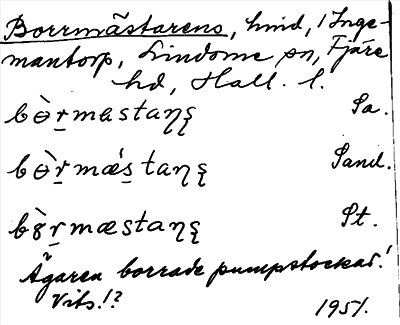 Borrmästarens, hmd, i Inge-
mantorp, Lindome sn, Fjäre
hd, Hall. l.
bɵ̀r̠mastaɳʂ Sa.
bɵ̀r̠mæ´s̠taɳʂ Sand.
bȣ̀r̠mæstaɳʂ St.
Ägaren borrade pumpstockar!
Vits.!? 1951.